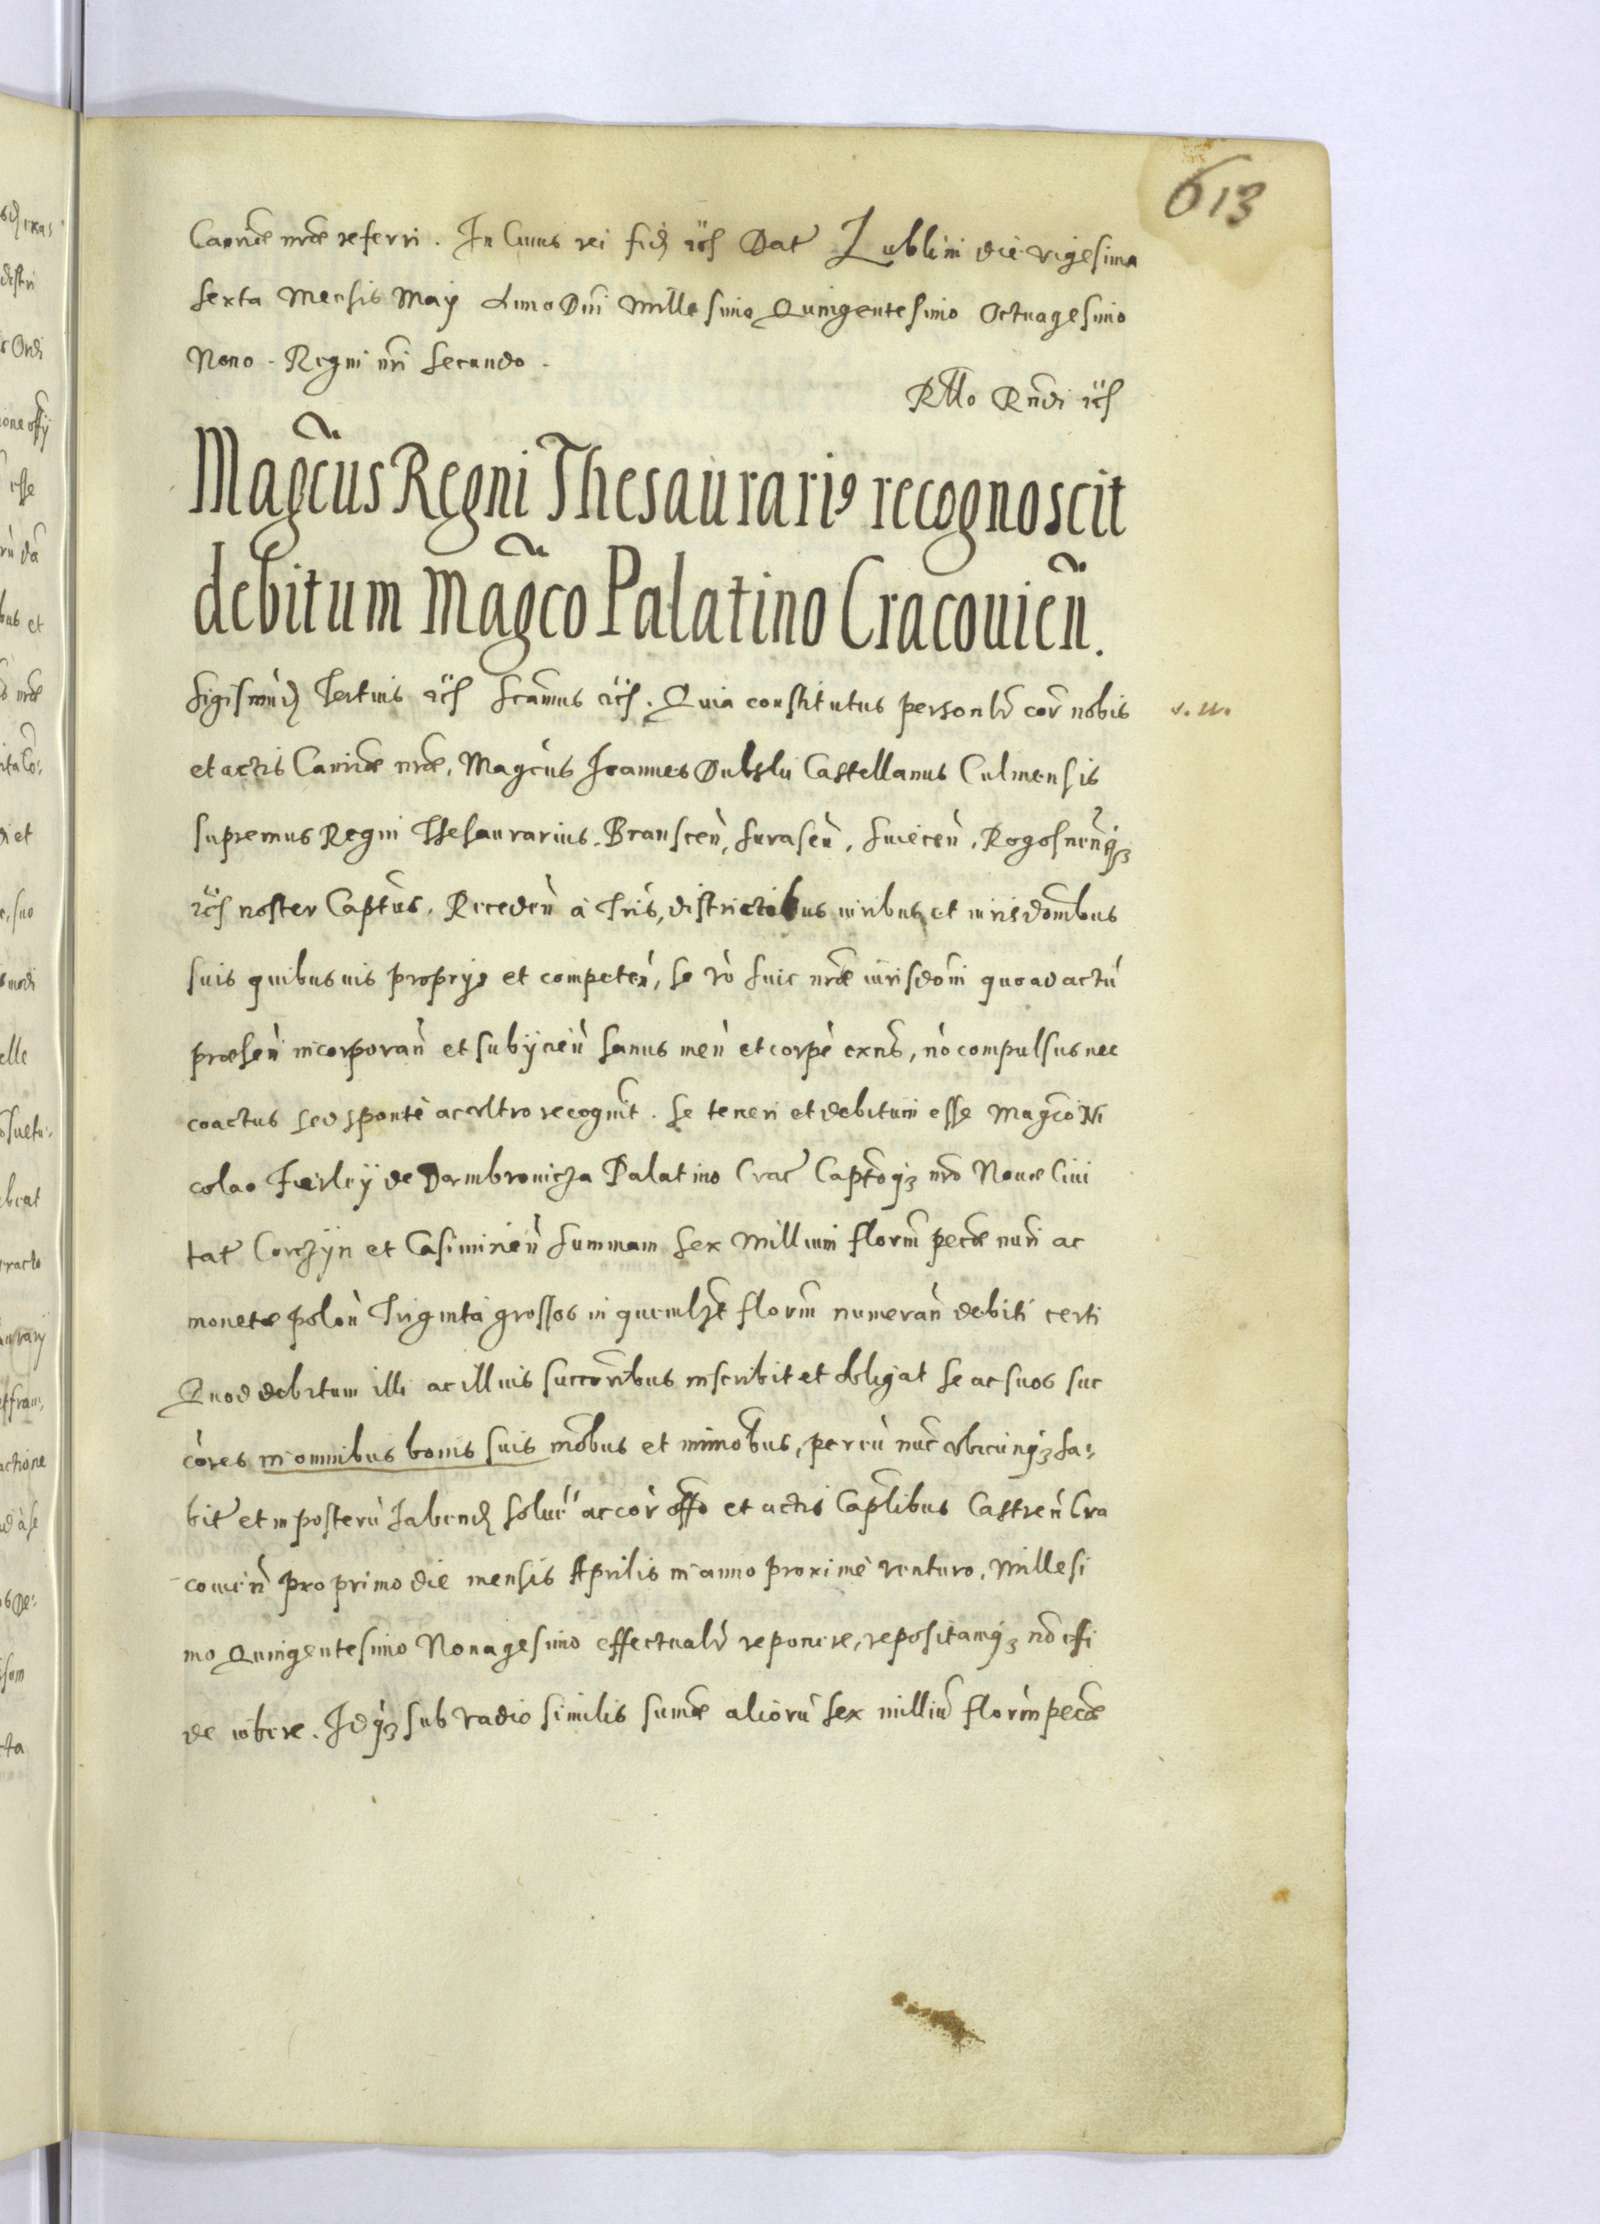 613
Canriæ nræ referri. In Cuius rei fid etc Dat Lublini die vigesima
sexta Mensis Maij Anno Dni Millesimo Quingentesimo Octuagesimo
Nono. Regni nri Secundo.
Rllo Rndi etc
Magcus Regni Thesaurari9 recognoscit
debitum Magco Palatino Cracouien.
Sigismud Tertius etc Scamus etc. Quia constitutus personlr cor nobis
v. u.
et actis Canriæ nræ, Magcus Joannes Dulski Castellanus Culmensis
supremus Regni Thesaurarius. Branscen, Surasen, Suiecen, Rogosnenq3
etc noster Captus. Receden à Tris, districtibus iuribus et iurisdombus
suis quibusuis proprijs et competen, se ro huic nræ iurisdoni quoad actu
præsen incorporan et subijcien sanus men et corpe exns, no compulsus nec
coactus sed sponte ac vltro recognit. Se teneri et debitum esse Magco Ni
colao Firleÿ de Dambrouicza Palatino Crac Captoq3 nro Nouæ Ciui
tat Corczÿn et Casimirien summam sex Millium florm pecæ num ac
monetæ polon Triginta grossos in quemlzt florm numeran debiti certi
Quod debitum illi ac illius succoribus inscribit et obligat se ac suos suc
cores in omnibus bonis suis mobus et immobus, per eu nunc vbicunq3 ha:
bit et in posteru habend soluere ac cor offo et actis Caplibus Castren Cra
couien pro primo die mensis Aprilis in anno proxime venturo, Millesi
mo Quingentesimo Nonagesimo effectualr reponere, repositamq3
de iubere. Idq3 sub vadio similis sumæ alioru sex milliu florm pecæ